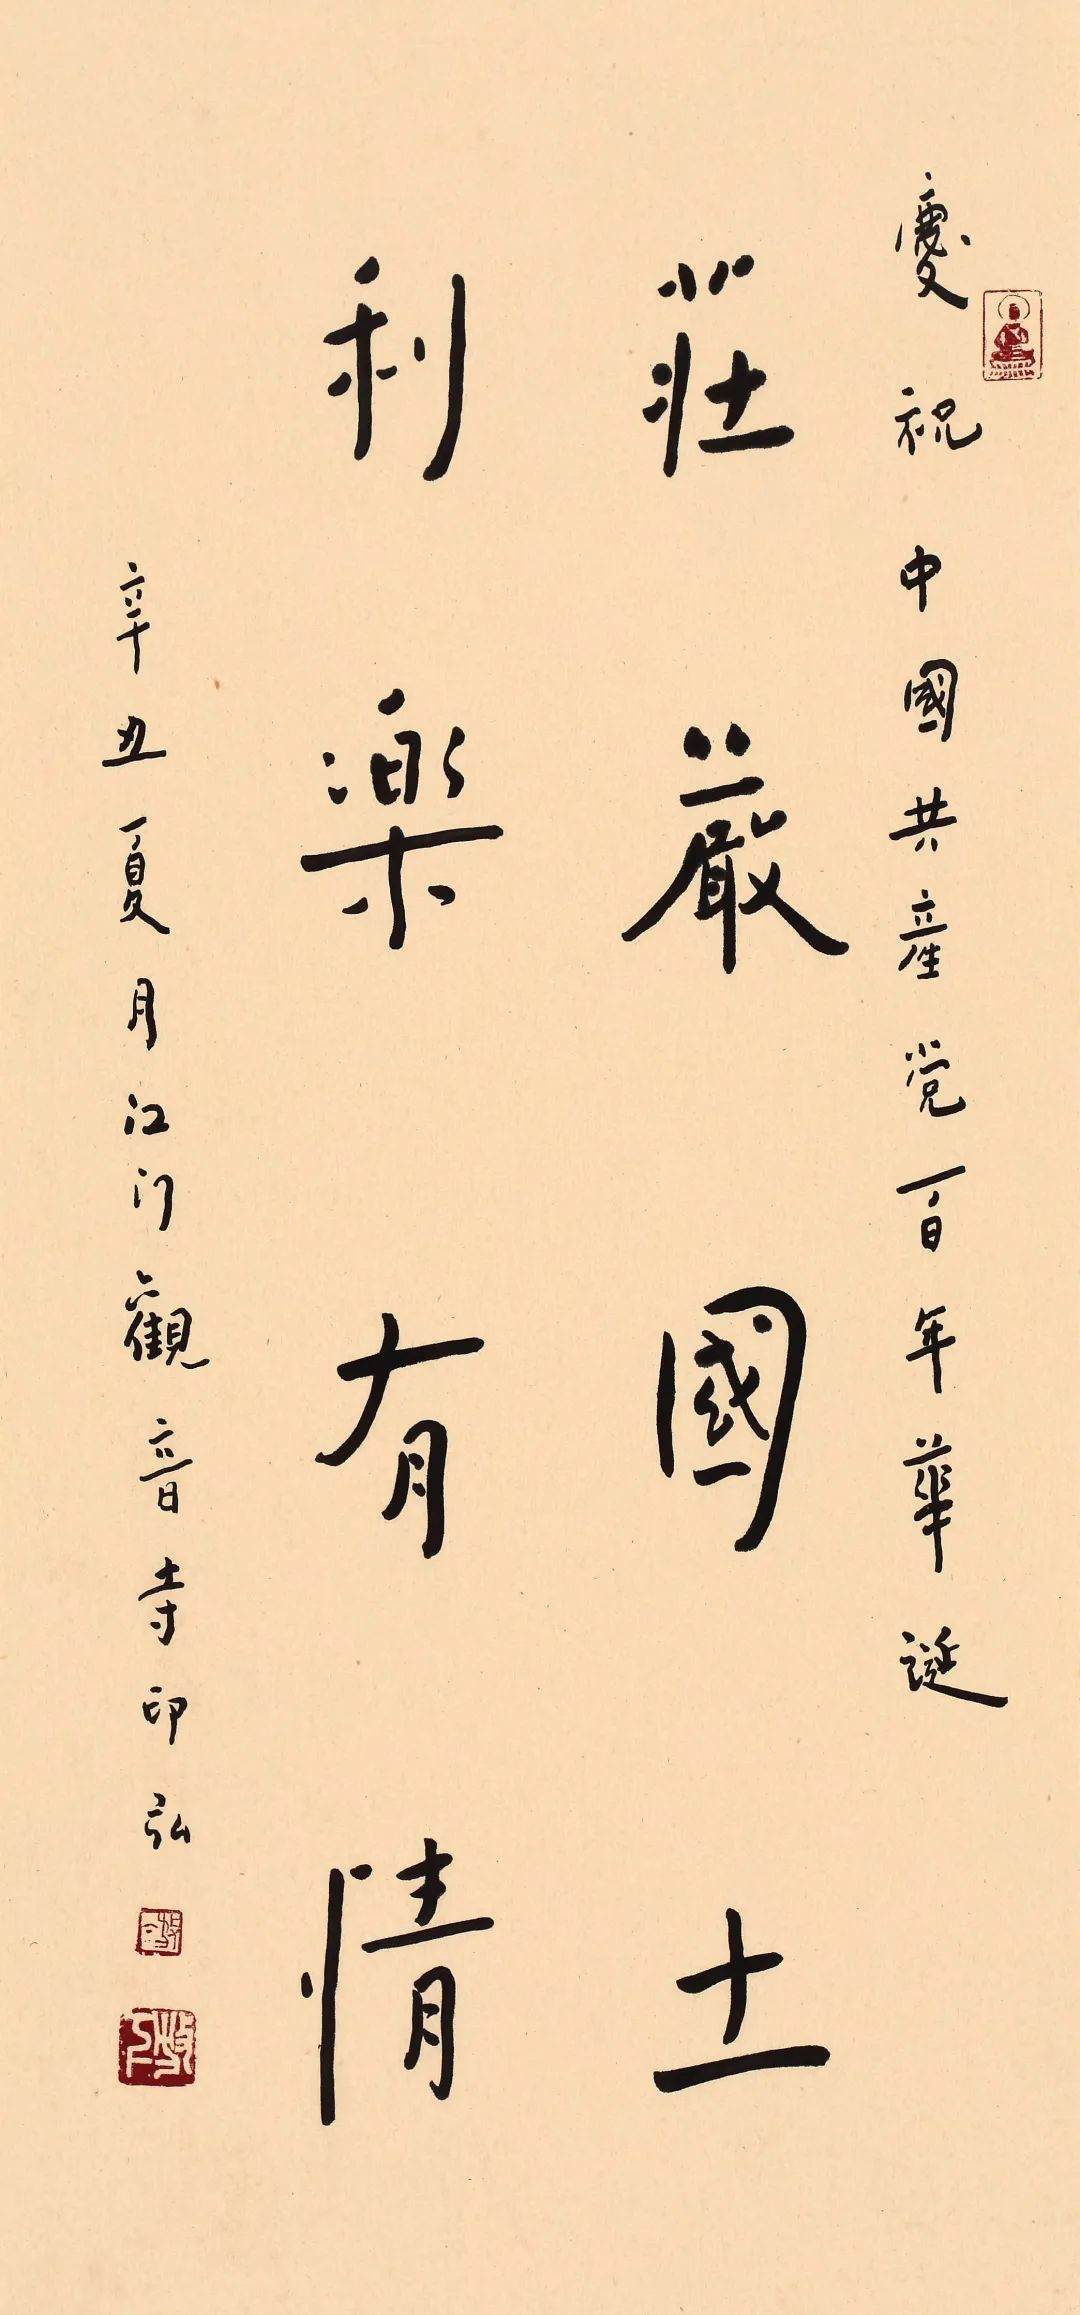 慶祝中國共産党百年華誕
莊嚴國土
利樂有情
辛丑夏月江门觀音寺印弘